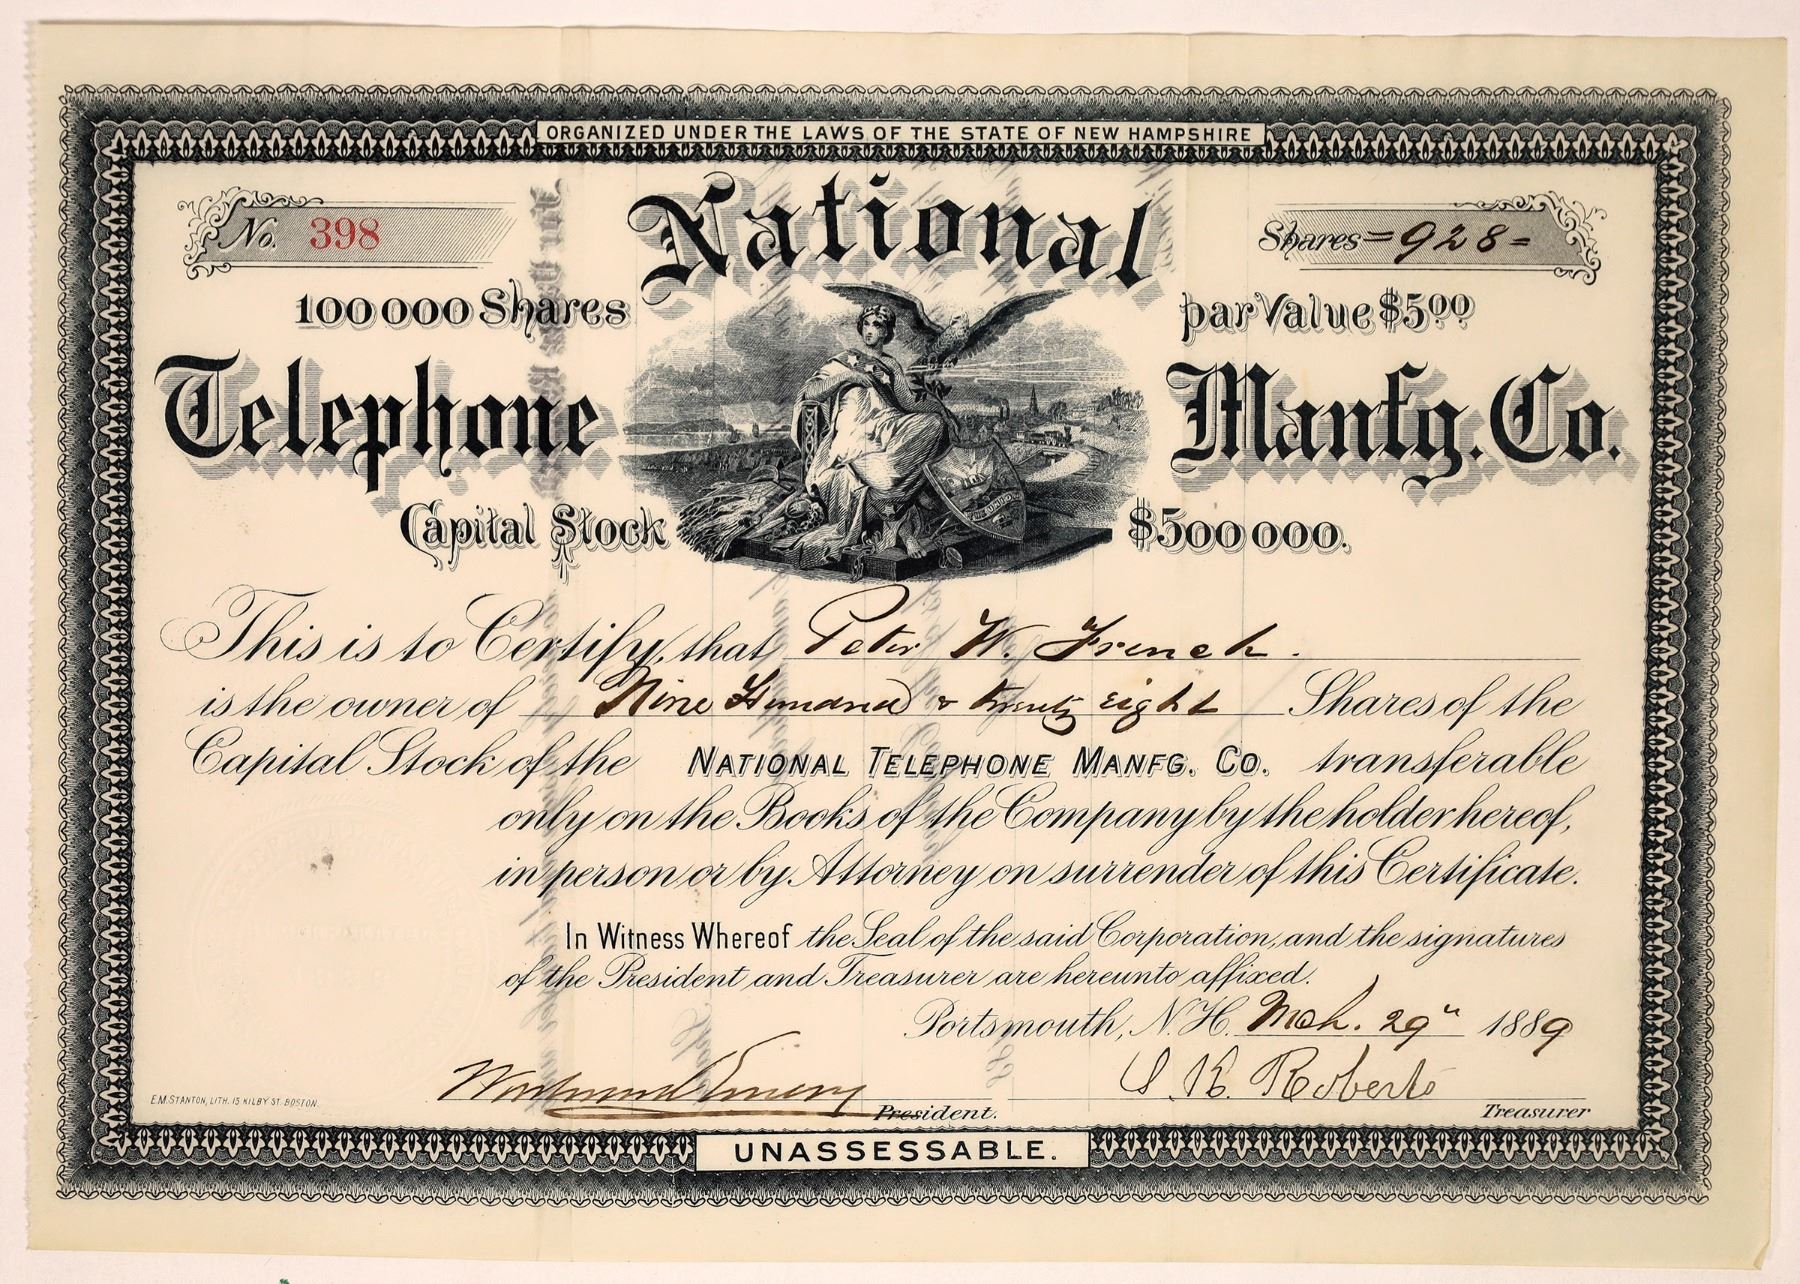 ORGANIZED UNDER THE LAWS OF THE STATE OF NEW HAMPSHIRE
No. 398
National
Shares =928=
100000 Shares
par Value $5.00
Telephone
Manfg. Co.
Capital Stock
$500000.
This is to Certify, that Peter W. French.
is the owner of Nine Hundred & twenty eight Shares of the
Capital Stock of the NATIONAL TELEPHONE MANFG. CO. transferable
only on the Books of the Company by the holder hereof,
in person or by Attorney on surrender of this Certificate.
In Witness Whereof the Seal of the said Corporation, and the signatures
of the President and Treasurer are hereunto affixed.
Portsmouth, N.H. Mch. 29" 1889
S. K. Roberts
President.
Treasurer
E.M. STANTON, LITH. 15 KILBY ST. BOSTON.
UNASSESSABLE.